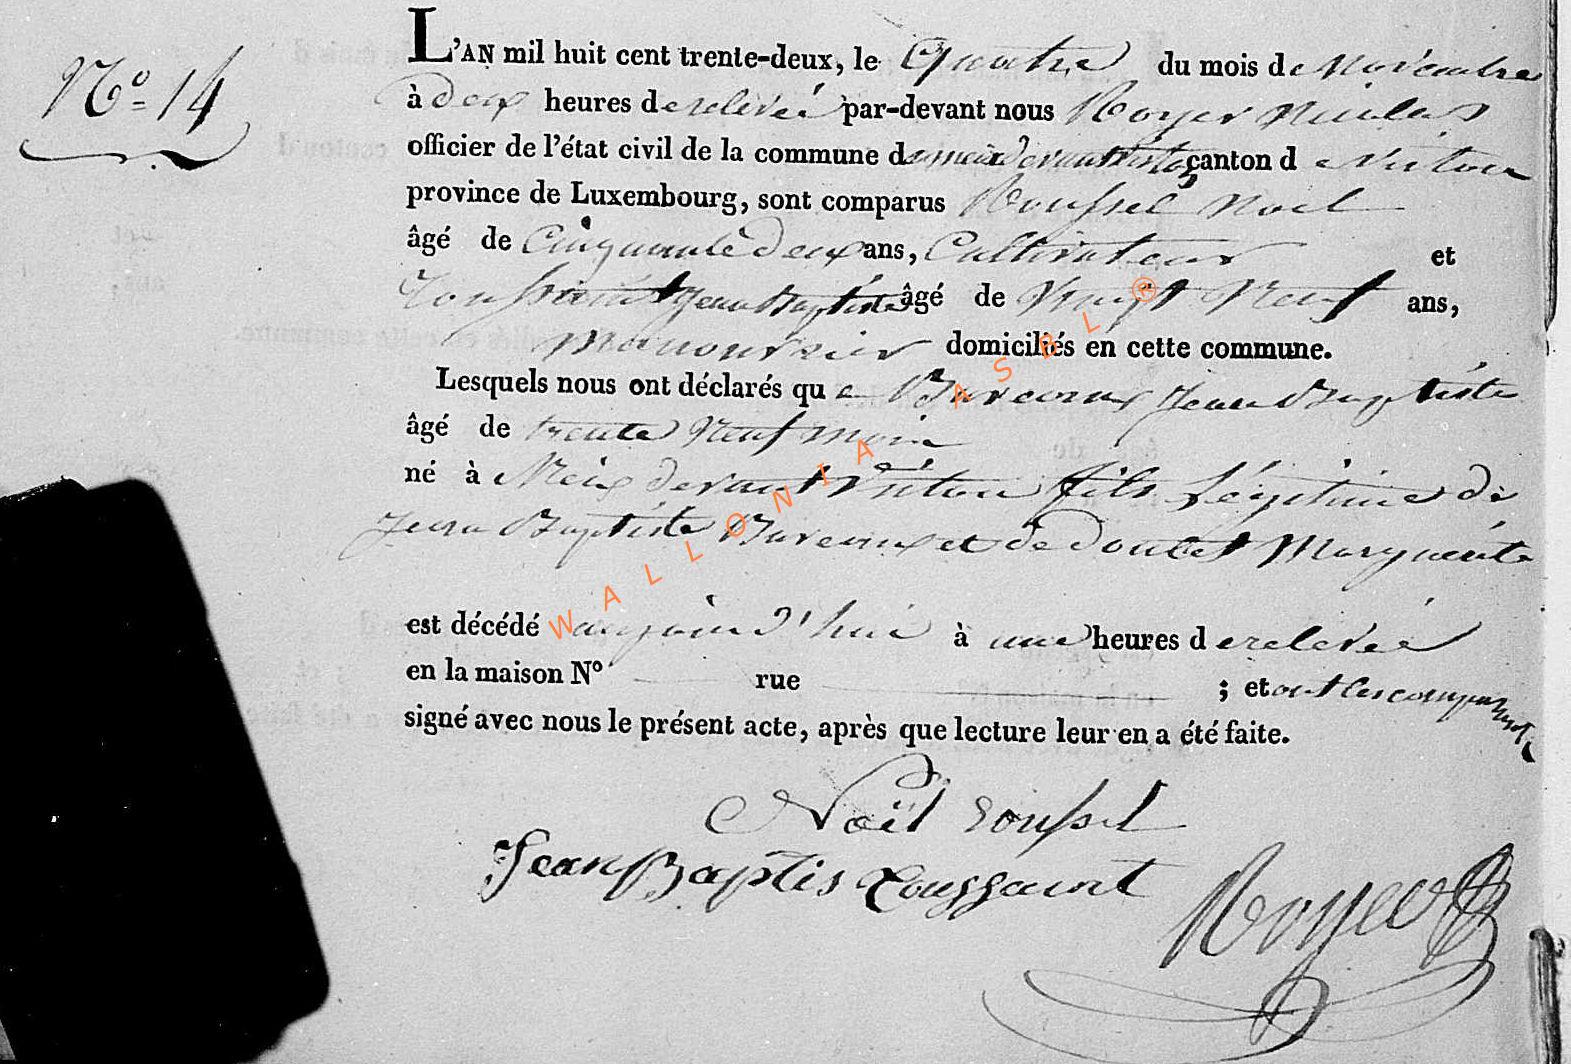 N.º 14
L'AN mil huit cent trente-deux, le Quatre du mois de novembre
à deux heures de relevée par-devant nous Royer Nicolas
officier de l'état civil de la commune de meix devant virton canton de Virton
province de Luxembourg, sont comparus Roussel Noel
âgé de Cinquante deux ans, Cultivateur et
Toussaint Jean Baptiste âgé de Vingt Neuf ans,
Manouvrier domiciliés en cette commune.
Lesquels nous ont déclarés que Bureaux Jean Baptiste
âgé de trente Neuf mois
né à Meix devant Virton fils légitime de
Jean Baptiste Bureaux et de Doutet Marguerite
est décédé aujourd'hui à une heures de relevée
en la maison N° rue ; et ont les comparants
signé avec nous le présent acte, après que lecture leur en a été faite.
Noël roussel
Jean Baptis toussaint
Royer
WALLONIA ASBL ®